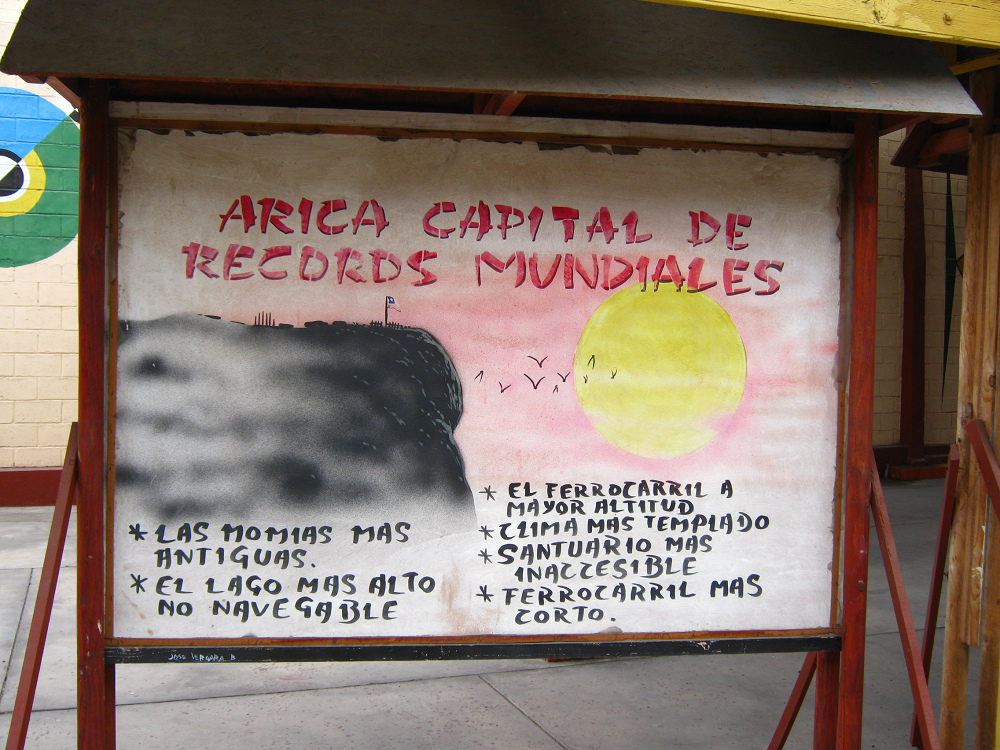 ARICA CAPITAL DE
RECORDS MUNDIALES
* LAS MOMIAS MAS
ANTIGUAS.
* EL LAGO MAS ALTO
NO NAVEGABLE
* EL FERROCARRIL A
MAYOR ALTITUD
* CLIMA MAS TEMPLADO
* SANTUARIO MAS
INACCESIBLE
* FERROCARRIL MAS
CORTO.
JOSE VERGARA B